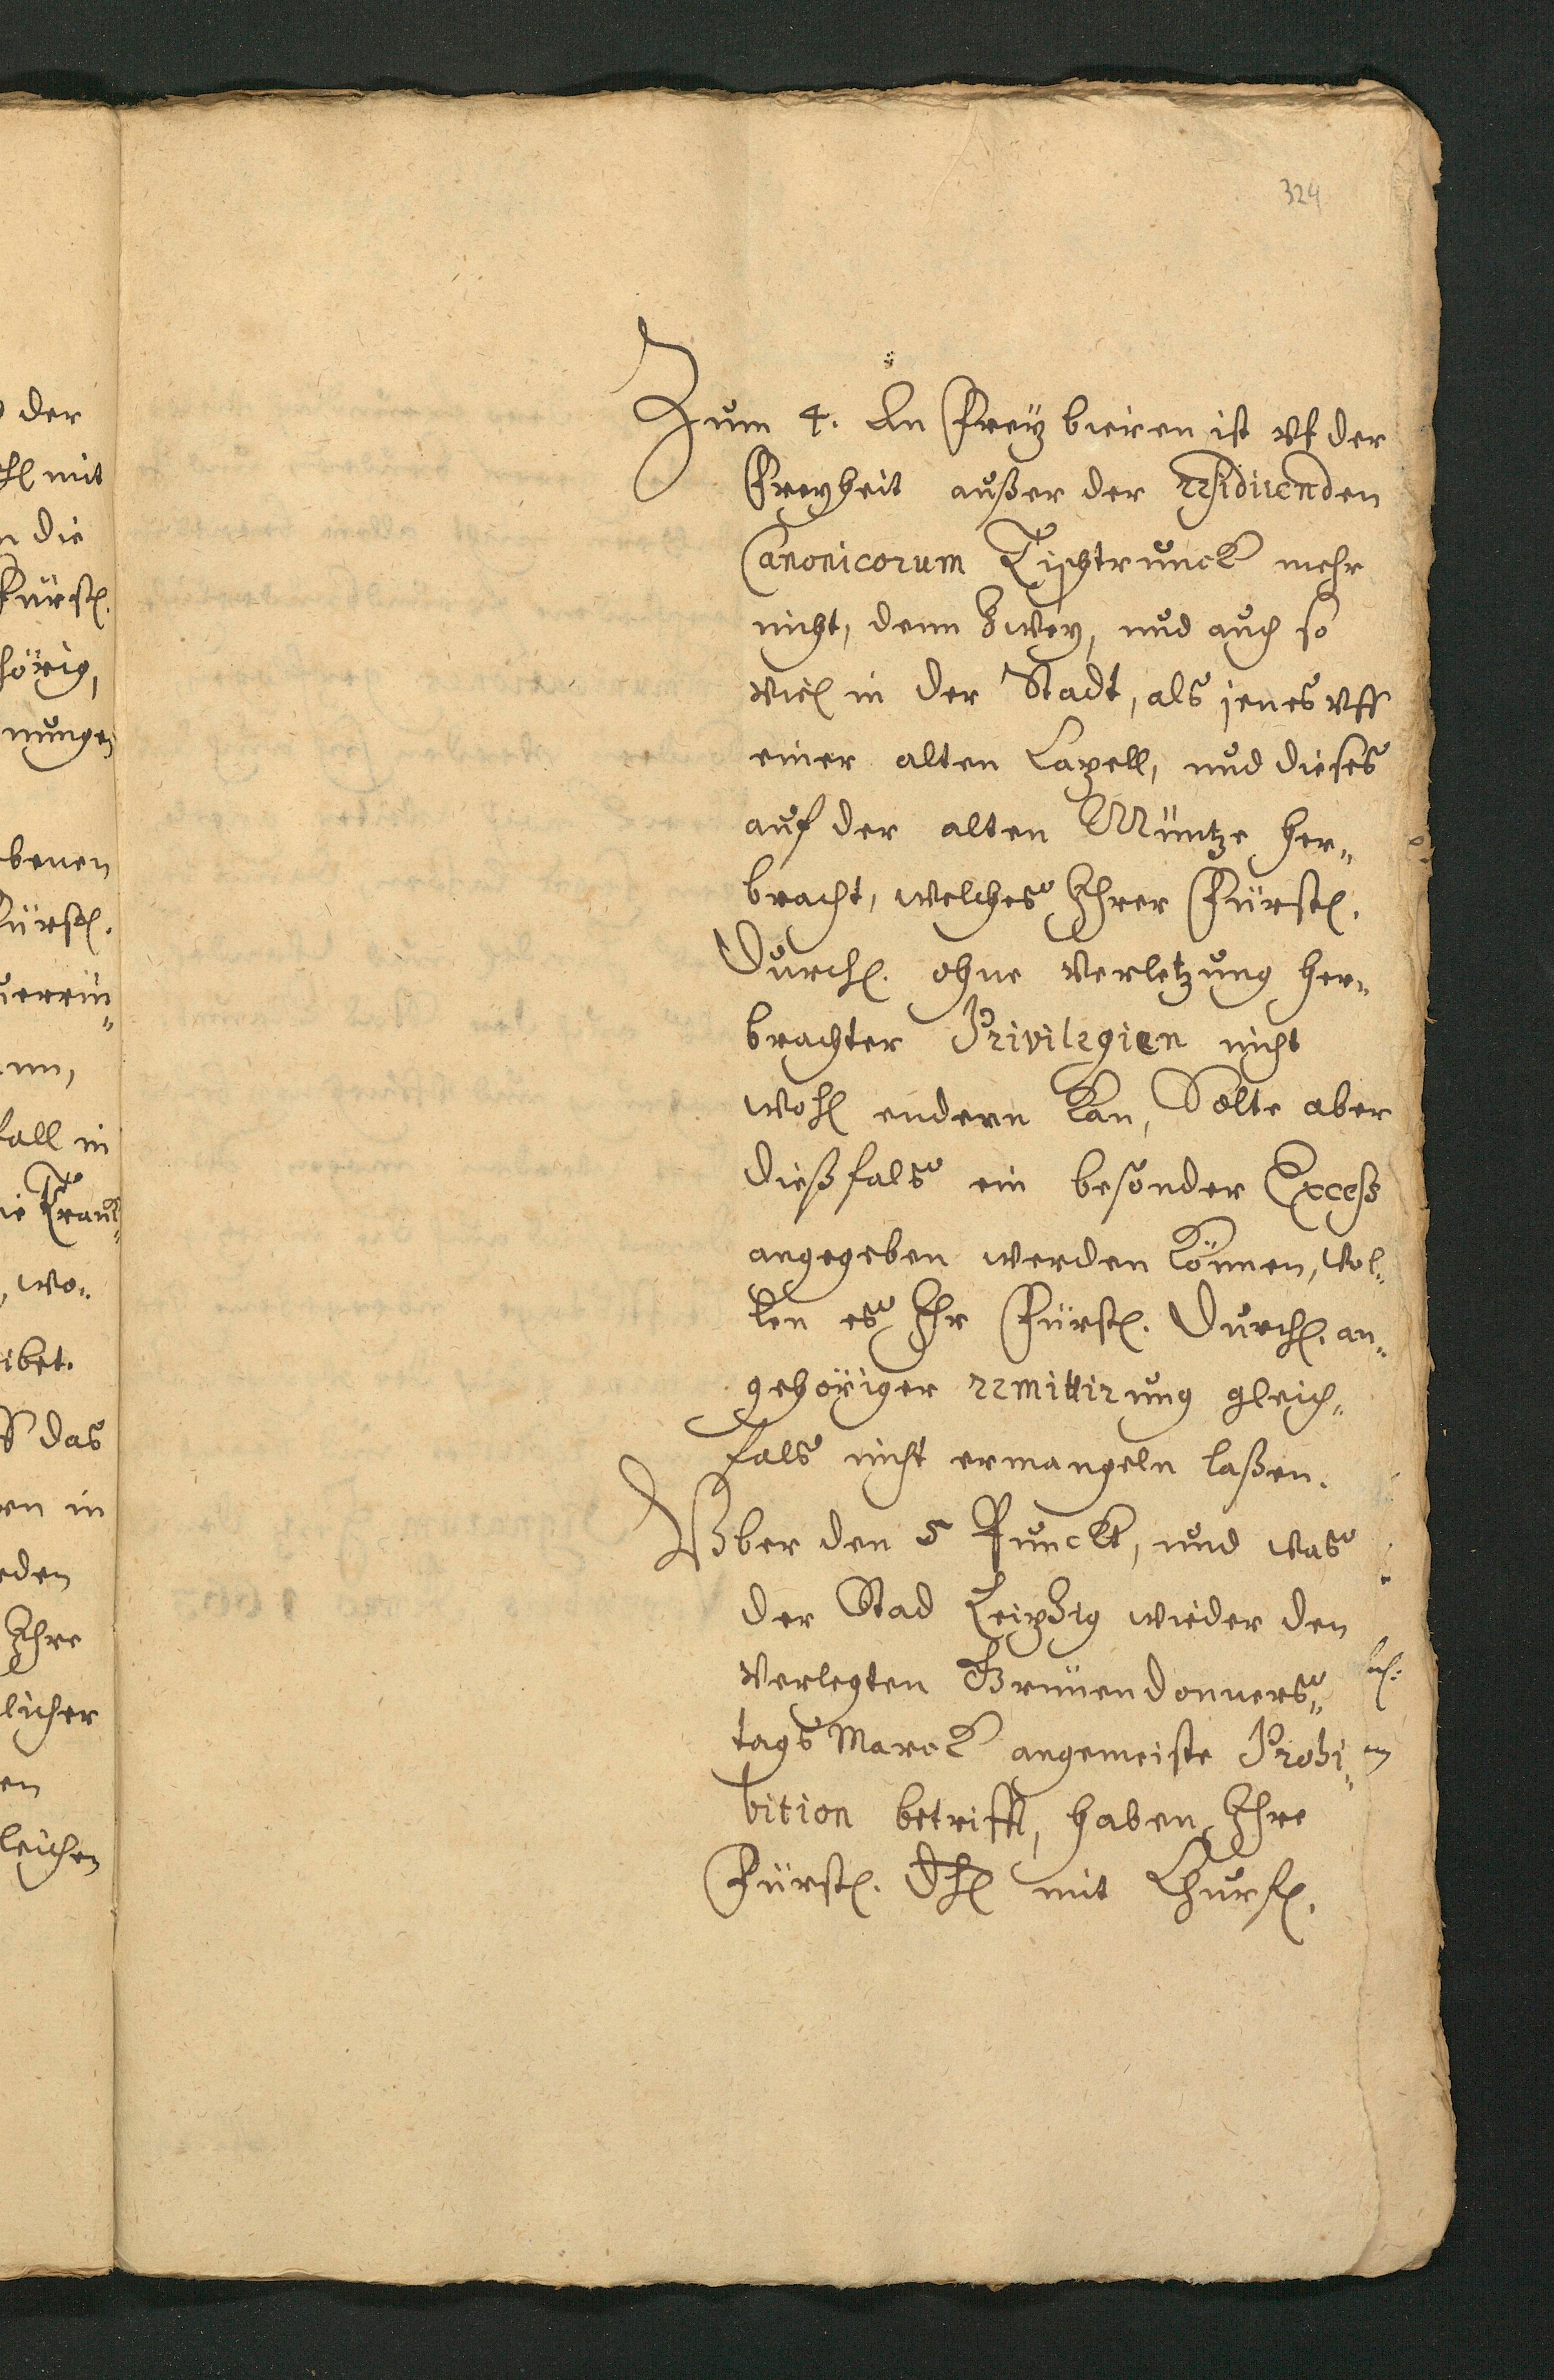 324
Zum 4. An Freÿ bieren ist vf der
Freyheit außer der residirenden
Canonicorum Tischtrunck mehr
nicht, denn Zweÿ, und auch so
viel in der Stadt, als jenes vff
einer alten Capell, und dieses
auf der alten Müntze her„
bracht, welches Ihrer Fürstl.
Durchl. ohne verletzung her„
brachter Privilegien nicht
wohl endern kan, Solte aber
dießfals ein besonder Excess
angegeben werden können, Wol„
len es Ihr Fürstl. Durchl. an„
gehöriger remittirung gleich„
fals nicht ermangeln laßen.
Vber den 5 Punckt, und was
der Stad Leipzig wieder den
verlegten Grünendonners„
tags Marck angemeiste Prohi„
bition betrifft, haben Ihre
Fürstl. Dhl mit Churfl.
der
mit
die
Fürstl.
hörig,
nungen
benen
Fürstl.
nn,
fall in
wo„
ibet.
das
en in
eden
Ihre
licher
en
leichen